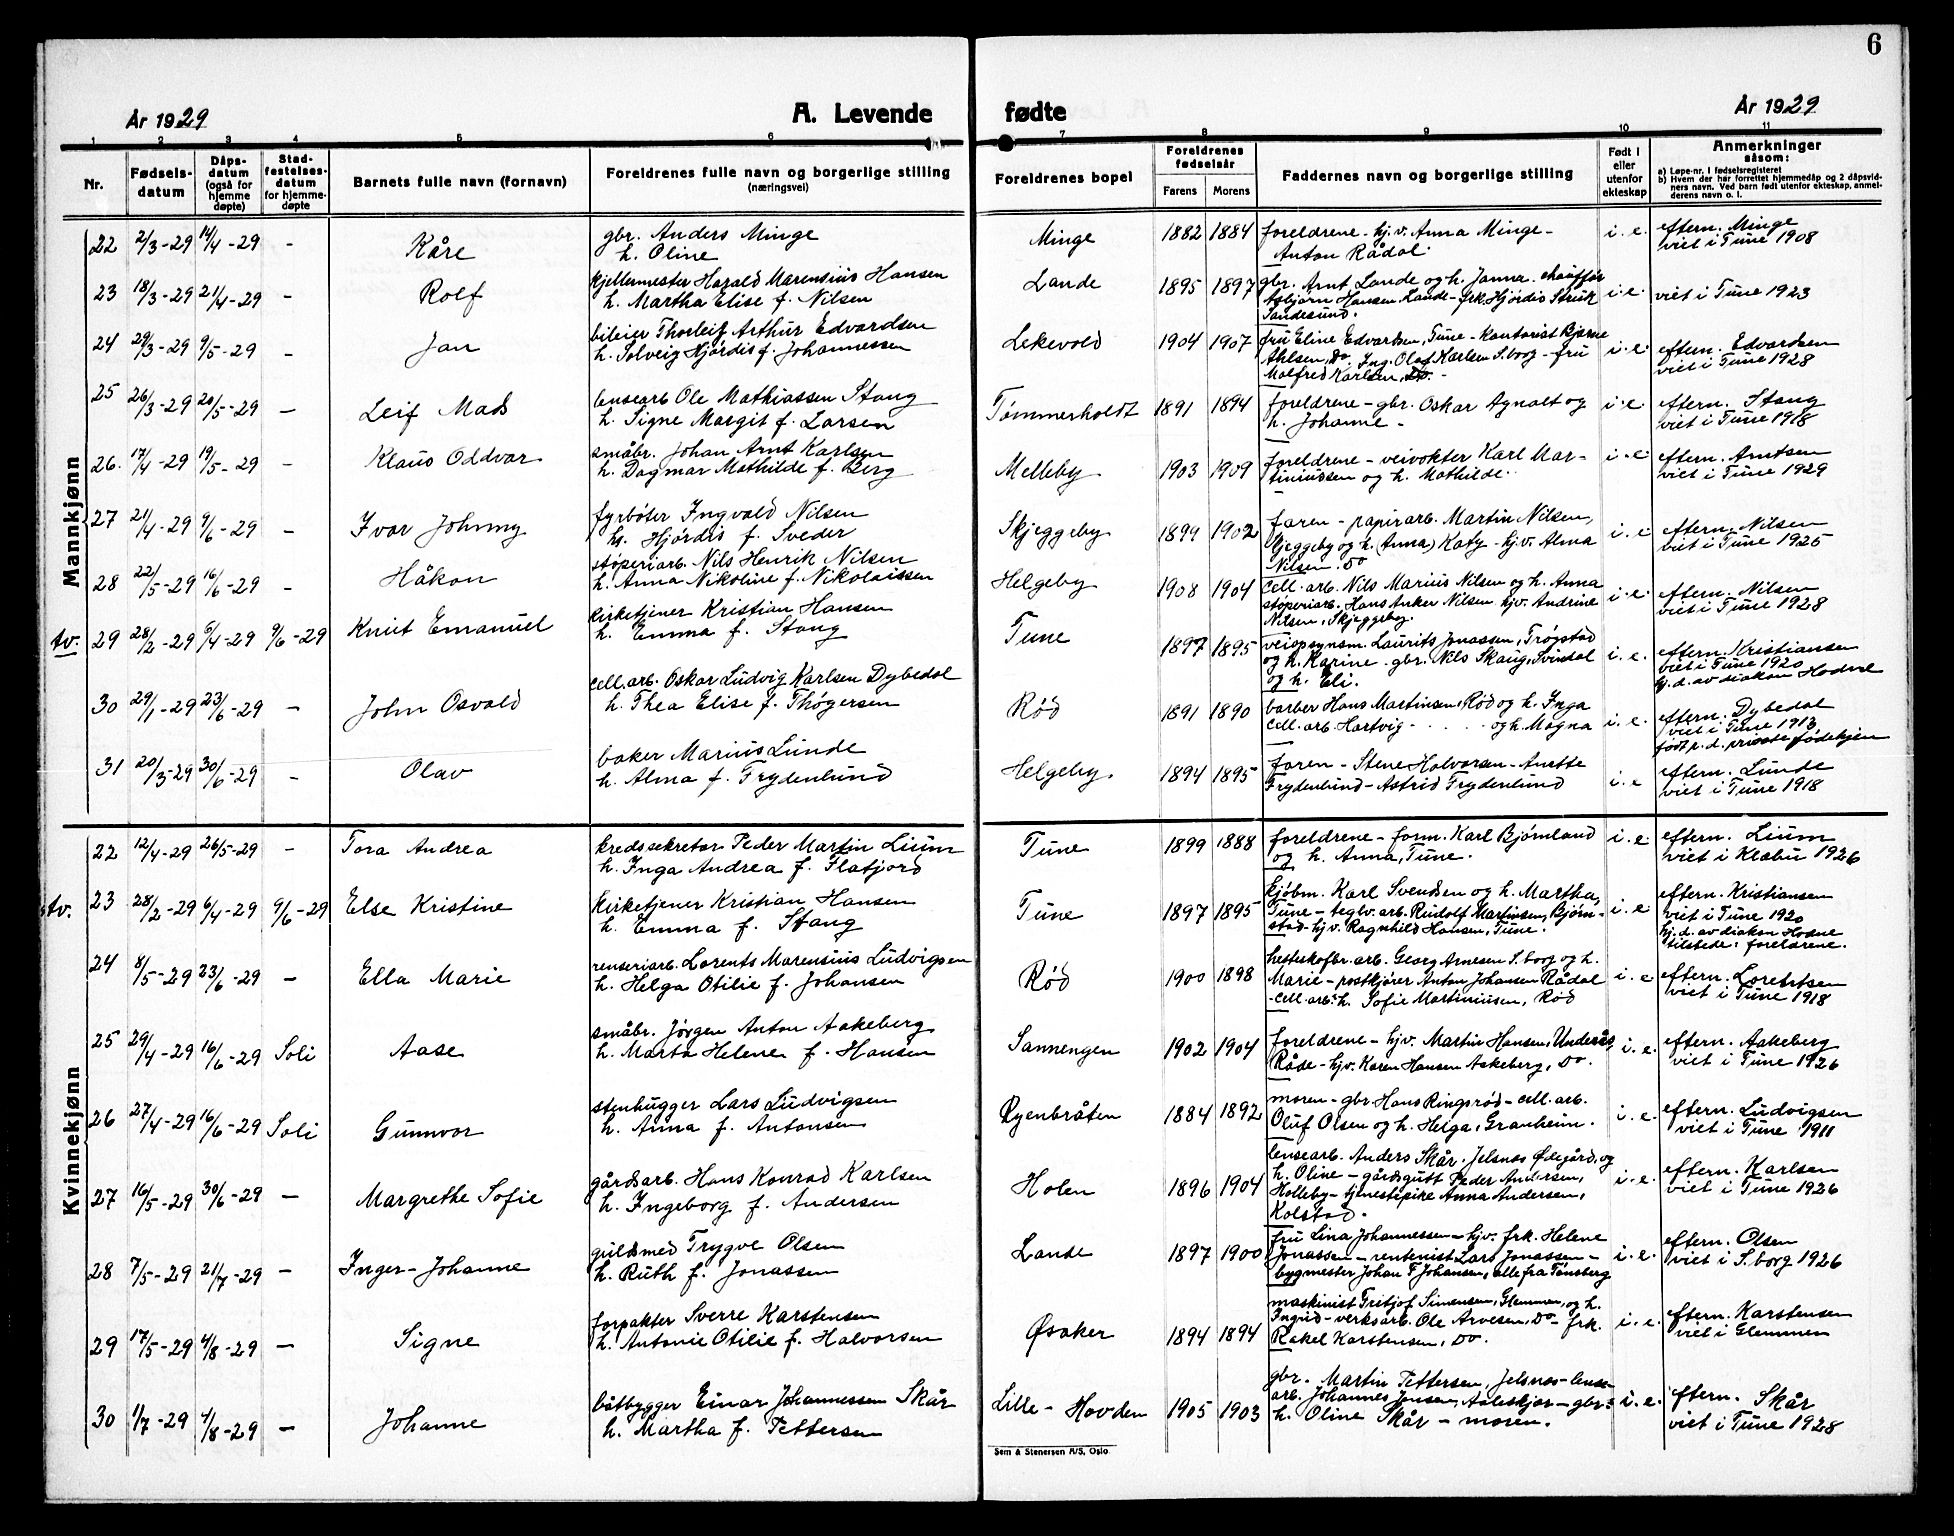 6
År 1929
A. Levende
fødte
År 1929
1 2 3 4 5 6 7 8 9 10 11
Nr.
Fødsels-
datum
Dåps-
datum
(også for
hjemme
døpte)
Stad-
festelses-
datum
for hjemme-
døpte
Barnets fulle navn (fornavn)
Foreldrenes fulle navn og borgerlige stilling
(næringsvei)
Foreldrenes bopel
Foreldrenes
fødselsår
Farens Morens
Faddernes navn og borgerlige stilling
Født i
eller
utenfor
ekteskap
Anmerkninger
såsom:
a) Løpe-nr. i fødselsregisteret
b) Hvem der har forrettet hjemmedåp og 2 dåpsvid-
ners navn. Ved barn født utenfor ekteskap, anmel-
derens navn o. l.
Mannkjønn
22 2/3-29 14/4-29 - Kåre
gbr. Anders Minge
h. Oline
Minge 1882 1884
foreldrene - hj.v. Anna Minge -
Anton Rådal.
i. e.
eftern. Minge
viet i Tune 1908
23 18/3-29 21/4-29 - Rolf
kjellermester Harald Marensius Hansen
h. Martha Elise f. Nilsen
Lande 1895 1897
gbr. Arnt Lande og h. Janna. chauffør
Asbjørn Hansen Lande - frk. Hjørdis Struk
Sandesund.
i. e.
viet i Tune 1923
24 29/3-29 9/5-29 - Jan
bileier Thorleif Arthur Edvardsen
h. Solveig Hjørdis f. Johannessen
Lekevold 1904 1907
fru Eline Edvardsen, Tune - kontorist Bjarne
Ahlsen, Do, Ing. Olaf Karlsen S.borg - fru
Malfred Karlsen, Do. -
i. e.
eftern. Edvardsen
viet i Tune 1928
25 26/3-29 20/5-29 - Leif Mads
lensearb Ole Mathiassen Stang
h. Signe Margit f. Larsen
Tømmerholdt 1891 1894
foreldrene - gbr. Oskar Agnalt og
h. Johanne -
i. e.
eftern. Stang
viet i Tune 1918
26. 17/4-29 19/5-29 - Klaus Oddvar
småbr. Johan Arnt Karlsen
h. Dagmar Mathilde f. Berg
Melleby 1903 1909
foreldrene - veivokter Karl Mar-
tiniussen og h. Mathilde.
i. e.
eftern. Arntsen
viet i Tune 1929
27 21/4-29 9/6-29 - Ivar Johnny
fyrbøter Ingvald Nilsen
h. Hjørdis f. Sveder
Skjeggeby 1899 1902
faren - papirarb. Martin Nilsen,
Kjeggeby og h. (Anna) Katy - hj.v. Alma
Nilsen. Do
i. e.
eftern. Nilsen
viet i Tune 1925
28 22/5-29 16/6-29 - Håkon
støperiarb. Nils Henrik Nilsen
h. Anna Nikoline f. Nikolaissen
Helgeby 1908 1904
Cell. arb. Nils Marius Nilsen og h. Anna
støperiarb. Hans Anker Nilsen hj.v. Andrine
Nilsen, Skjeggeby.
i. e.
eftern. Nilsen
viet i Tune 1928
tv. 29 28/2-29 6/4-29 9/6-29 Knut Emanuel
kirketjener Kristian Hansen
h. Emma f. Stang
Tune 1897 1895
veiopsynsm. Laurits Jonassen, Trøgstad
og h. Karine. gbr. Nils Skaug, Svindal
og h. Eli.
i. e.
eftern. Kristiansen
viet i Tune 1920
hj.d. av diakon Hodne
30 29/1-29 23/6-29 - John Osvald
cell. arb. Oskar Ludvig Karlsen Dybedal
h. Thea Elise f. Thøgersen
Rød 1891 1890
barber Hans Martinsen, Rød og h. Inga
cell. arb. Hartvig - . . . og h. Magna
i. e.
eftern. Dybedal
viet i Tune 1913
født p. d. private fødehjem
31 20/3-29 30/6-29 - Olav
baker Marius Lunde
h. Alma f. Frydenlund
Helgeby 1894 1895
faren - Stene Halvorsen - Anette
Frydenlund - Astrid Frydenlund
i. e
eftern. Lunde
viet i Tune 1918
Kvinnekjønn
22 12/4-29 26/5-29 - Tora Andrea
kredssekretær Peder Martin Lium
h. Inga Andrea f. Flatjord
Tune 1899 1888
foreldrene - form. Karl Bjørnland
og h. Anna, Tune.
i. e.
eftern. Lium
viet i Klæbu 1926
tv. 23 28/2-29 6/4-29 9/6-29 Else Kristine
kirketjener Kristian Hansen
h. Emma f. Stang
Tune 1897 1895
kjøbm. Karl Svendsen og h. Martha,
Tune - teglv. arb. Rudolf Martinsen, Bjørn-
stad - hj.v. Ragnhild Hansen, Tune.
i. e.
eftern. Kristiansen
viet i Tune 1920
hj.d. av diakon Hodne
tilstede: foreldrene.
24 8/5-29 23/6-29 - Ella Marie
renseriarb. Lorents Marensius Ludvigsen
h. Helga Otilie f. Johansen
Rød 1900 1898
hesteskofbr. arb. Georg Arnesen S.borg og h.
Marie - postkjører Anton Johansen Rådal
- cell. arb. h. Sofie Martiniusen, Rød
i. e
eftern. Lorentsen
viet i Tune 1918
25 29/4-29 16/6-29 Soli Aase
småbr. Jørgen Anton Aakeberg
h. Marta Helene f. Hansen
Sannengen 1902 1904
foreldrene - hj.v. Martin Hansen, Underås,
Råde - hj.v. Karen Hansen Aakeberg, Do.
i. e.
eftern. Aakeberg
viet i Tune 1926
26 27/4-29 16/6-29 Soli Gunnvor
stenhugger Lars Ludvigsen
h. Anna f. Antonsen
Øyenbråten 1884 1892
moren - gbr. Hans Ringsrød - cell. arb.
Oluf Olsen og h. Helga, Granheim.
i. e.
eftern. Ludvigsen
viet i Tune 1911
27 16/5-29 30/6-29 - Margrethe Sofie
gårdsarb. Hans Konrad Karlsen
h. Ingeborg f. Andersen
Holen 1896 1904
lensearb. Anders Skår, Jelsnes Ødegård, og
h. Oline - gårdsgutt Peder Andersen,
Holleby - tjenestipike Anna Andersen,
Kolstad.
i. e.
eftern. Karlsen
viet i Tune 1926
28 7/5-29 21/7-29 - Inger-Johanne
guldsmed Trygve Olsen
h. Ruth f. Jonassen
Lande 1897 1900
fru Lina Johannessen - hj.v. frk. Helene
Jonassen - rentenist Lars Jonassen -
bygmester Johan F. Johansen, alle fra Tønsberg
i. e.
eftern. Olsen
viet i S.borg 1926
29 17/5-29 4/8-29 - Signe
forpakter Sverre Karstensen
h. Antonie Otilie f. Halvorsen
Øsaker 1894 1894
maskinist Fritjof Simensen, Glemmen, og h.
Ingrid - verksarb. Ole Arvesen, Do - frk.
Rakel Karstensen, Do.
i. e.
eftern. Karstensen
viet i Glemmen
30 1/7-29 4/8-29 - Johanne
båtbygger Einar Johannessen Skår
h. Martha f. Pettersen
Lille - Hovden 1905 1903
gbr. Martin Pettersen, Jelsnes - lense-
arb. Johannes Jensen, Aaleskjær - gbr.
h. Oline Skår - moren.
i. e.
eftern. Skår
viet i Tune 1928
Sem & Stenersen A/S, Oslo